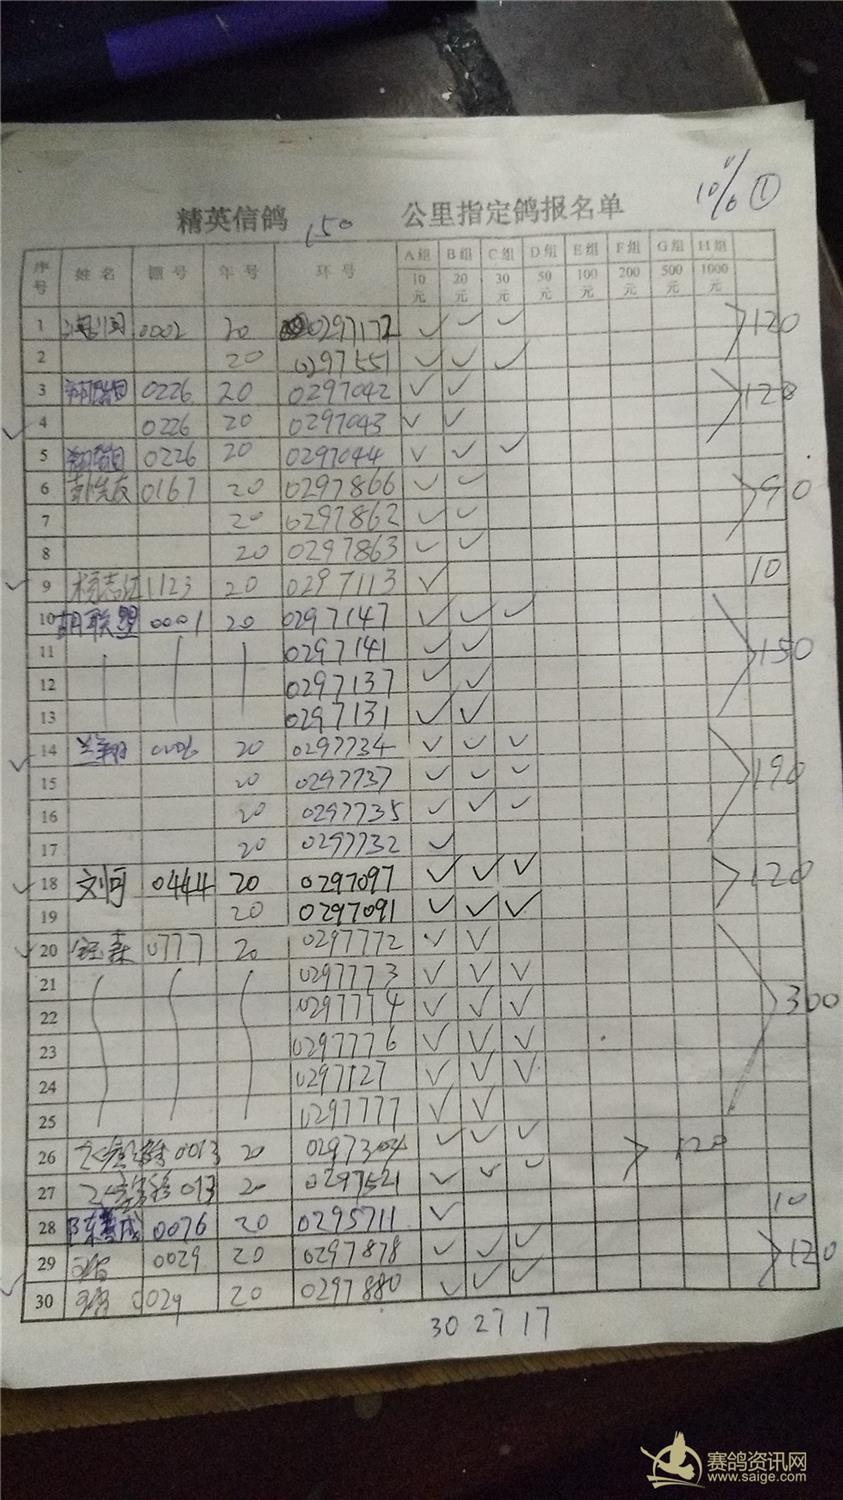 10/6 ①
精英信鸽 150 公里指定鸽报名单
序号 姓名 棚号 年号 环号 A组 B组 C组 D组 E组 F组 G组 H组
10元 20元 30元 50元 100元 200元 500元 1000元
1 0002 20 0297172 ✓ ✓ ✓ 120
2 20 0297551 ✓ ✓ ✓
3 0226 20 0297042 ✓ ✓ 120
4 0226 20 0297043 ✓ ✓
5 0226 20 0297044 ✓ ✓ ✓
6 彭先友 0167 20 0297866 ✓ ✓ 90
7 20 0297862 ✓ ✓
8 20 0297863 ✓ ✓
9 杨志 1123 20 0297113 ✓ 10
10 胡联盟 0001 20 0297147 ✓ ✓ ✓ 150
11 0297141 ✓ ✓
12 0297137 ✓ ✓
13 0297131 ✓ ✓
14 兰翔 20 0297734 ✓ ✓ ✓ 190
15 20 0297737 ✓ ✓ ✓
16 20 0297735 ✓ ✓ ✓
17 20 0297732 ✓
18 刘可 0444 20 0297097 ✓ ✓ ✓ 120
19 20 0297091 ✓ ✓ ✓
20 森 0777 20 0297772 ✓ ✓ 300
21 0297773 ✓ ✓ ✓
22 0297774 ✓ ✓ ✓
23 0297776 ✓ ✓ ✓
24 0297127 ✓ ✓ ✓
25 0297777 ✓ ✓
26 0013 20 0297304 ✓ ✓ ✓ 120
27 013 20 0297521 ✓ ✓ ✓
28 陈 成 0076 20 0295711 ✓ 10
29 0029 20 0297878 ✓ ✓ ✓ 120
30 0029 20 0297880 ✓ ✓ ✓
30 27 17
赛鸽资讯网
www.saige.com